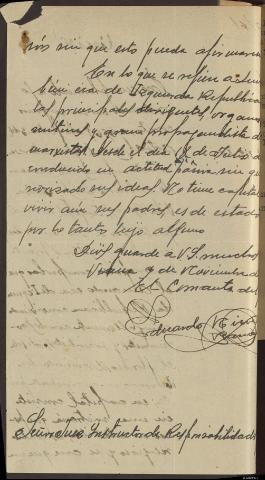 sión sin que esto pueda afirmarse
En lo que se refiere a
bien era de Izquierda Republica
los principales dirigentes, orga
mitines y gran propagandista de
marxistas desde el día de Julio
conducido en actitud pasiva sin que
sus ideas. No tiene capital
vivir aún sus padres, es de estado
por lo tanto hijo alguno
Dios guarde a V.S. muchos
9 de Noviembre de
El Comante del
Eduardo
Señor Juez Instructor de Responsabilidades